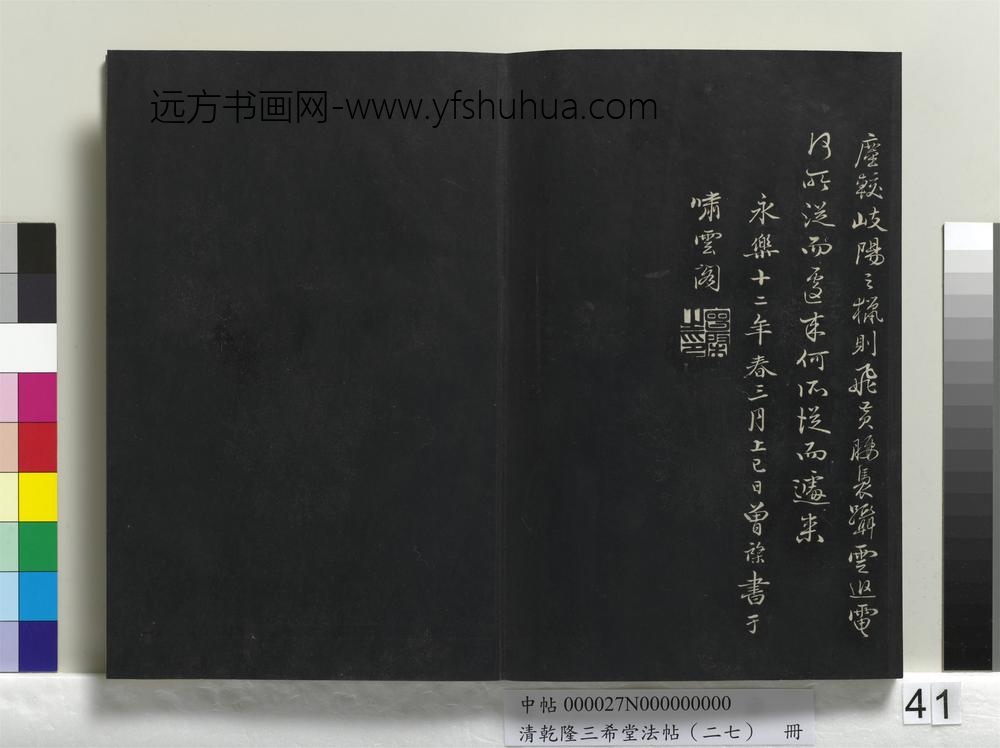 远方书画网-www.yfshuhua.com
塵較岐陽之獵則飛黃腰褭躡雲追電
何所從而遽來何所從而遽來
永樂十二年春三月上巳日曾棨書于
嘯雲閣
中帖 000027N000000000
清乾隆三希堂法帖（二七） 冊
41